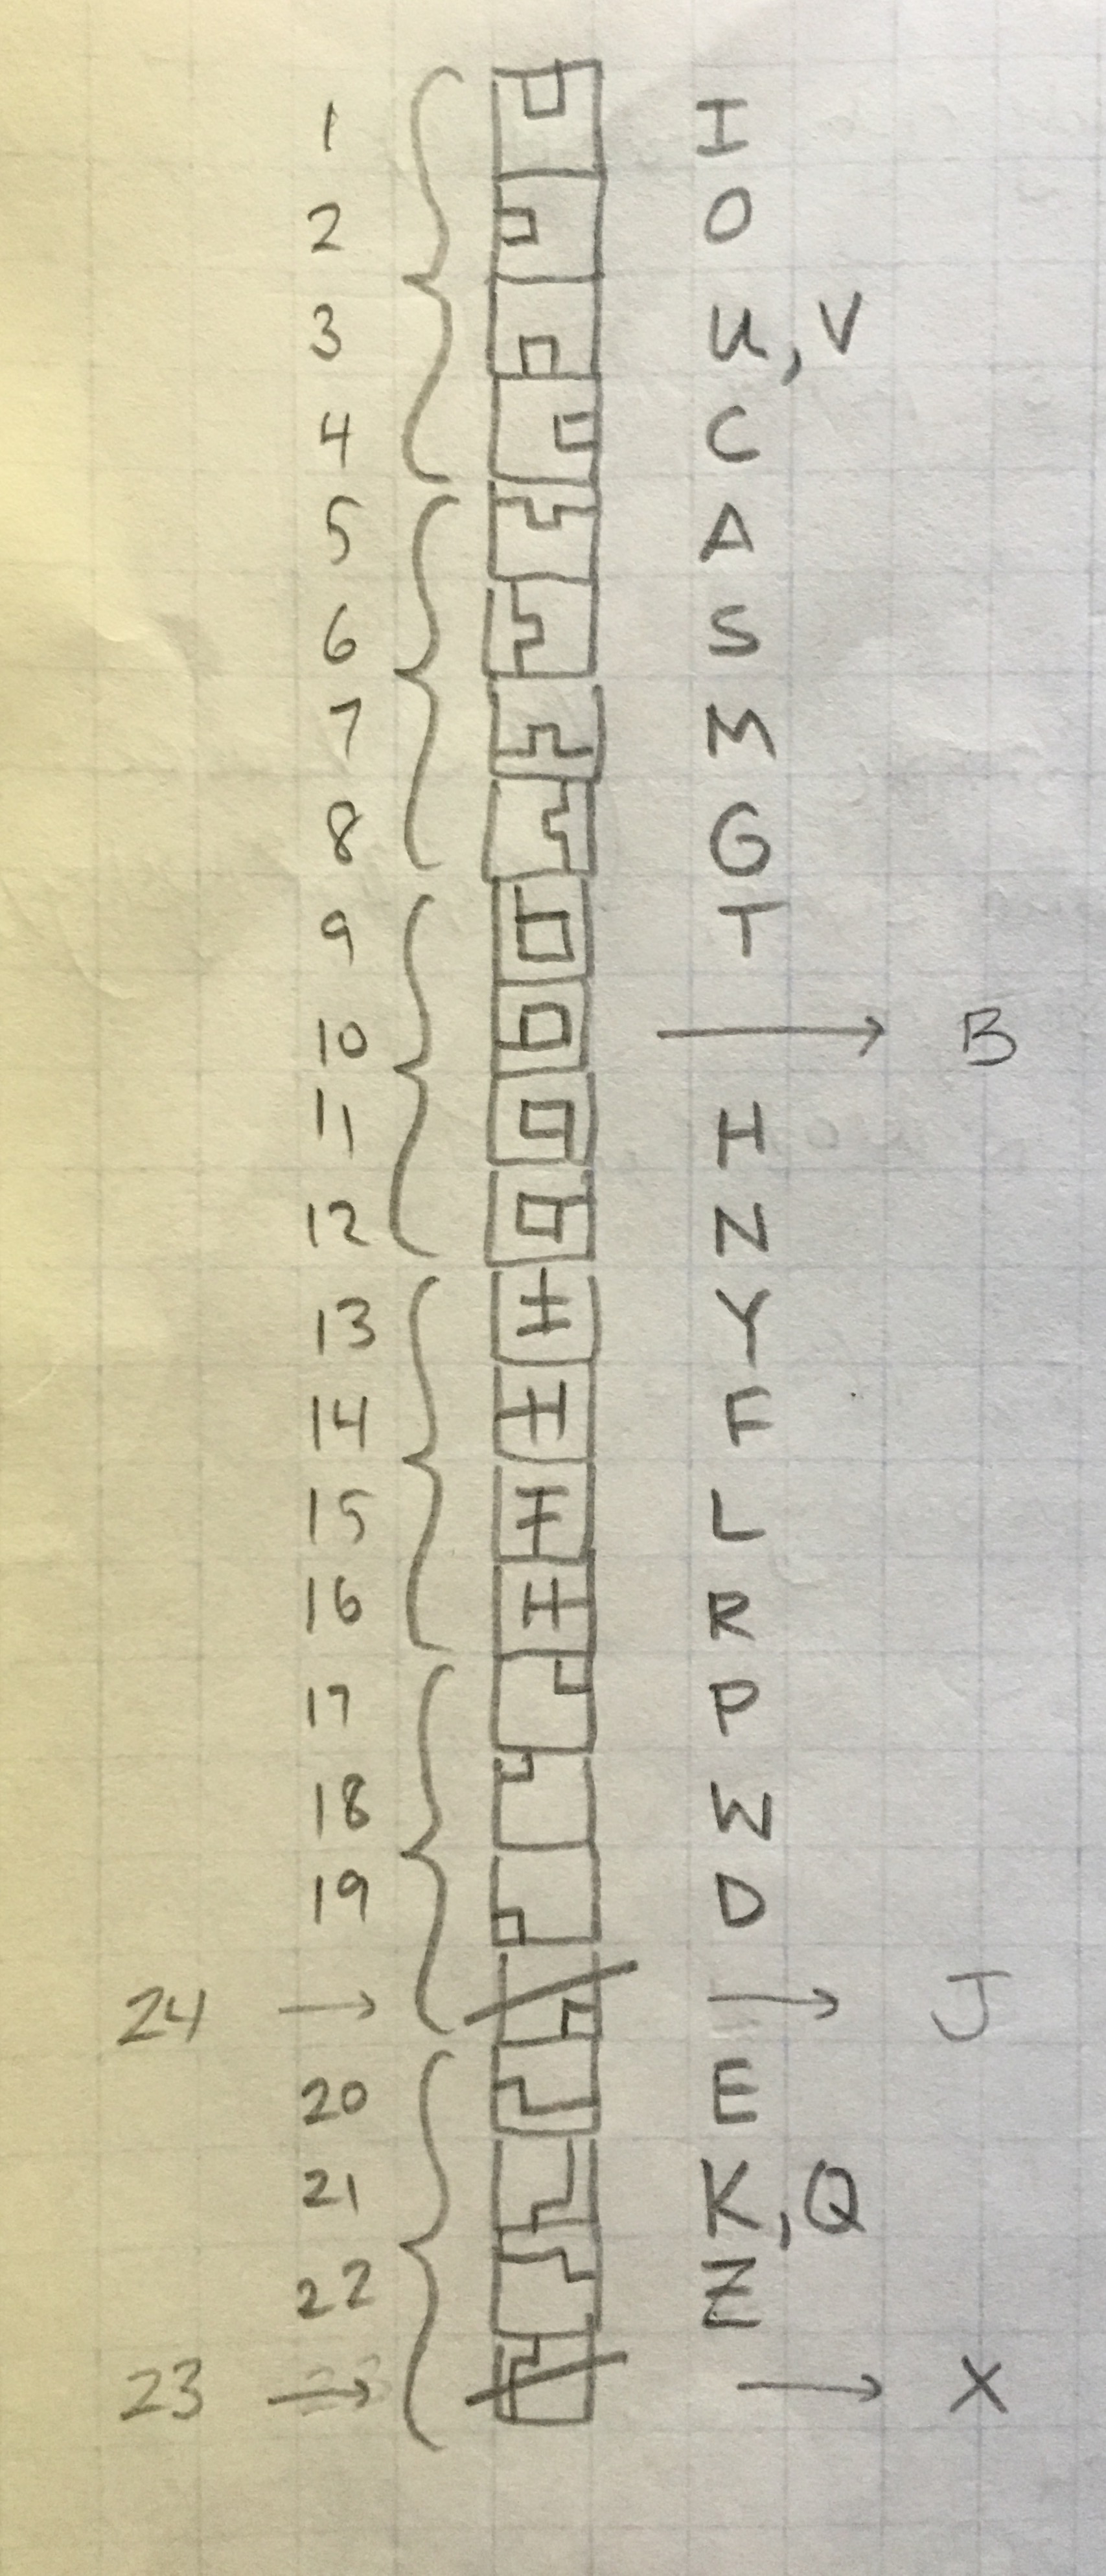 1 I
2 O
3 U, V
4 C
5 A
6 S
7 M
8 G
9 T
10 → B
11 H
12 N
13 Y
14 F
15 L
16 R
17 P
18 W
19 D
24 → → J
20 E
21 K, Q
22 Z
23 → → X